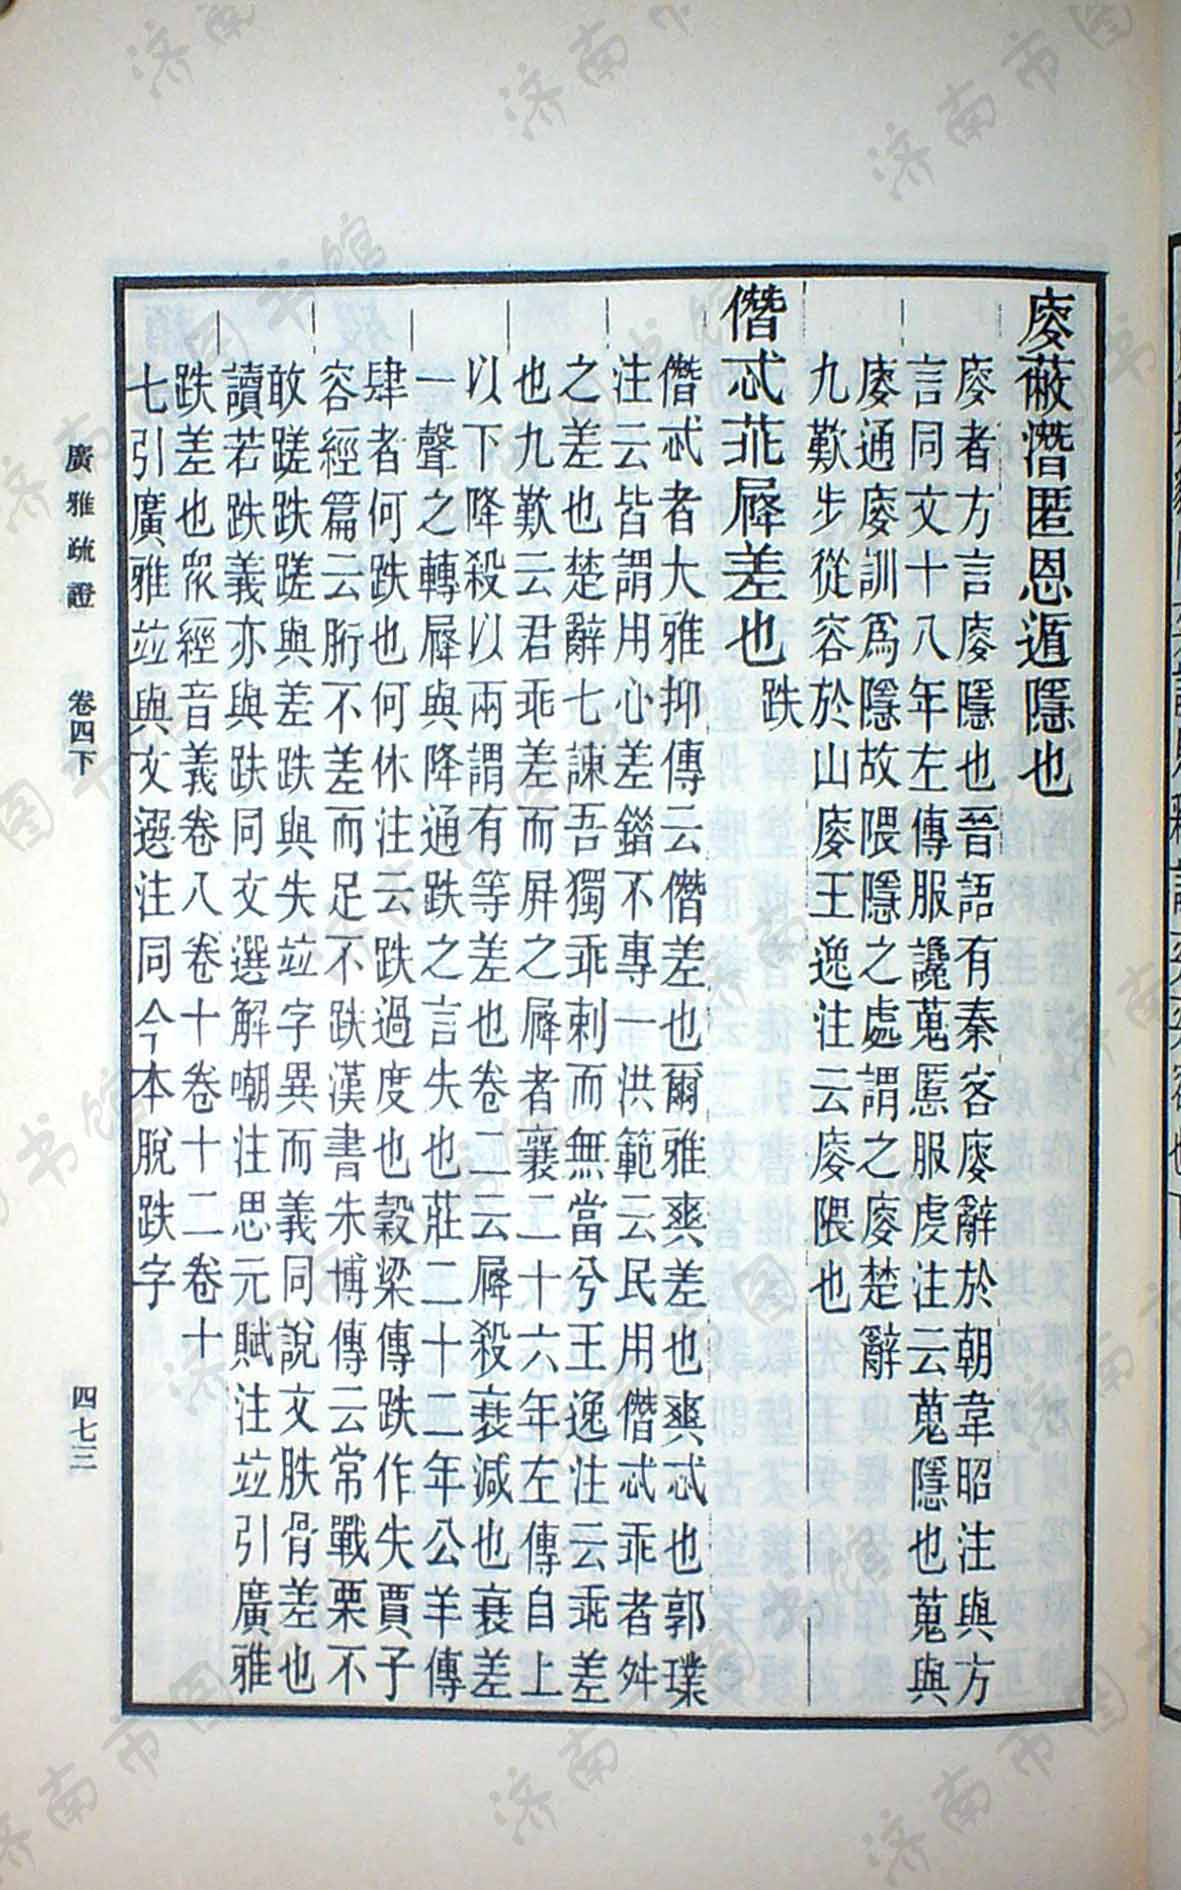 廋蔽潛匿恩遁隱也
廋者方言廋隱也晉語有秦客廋辭於朝韋昭注與方
言同文十八年左傳服讒蒐慝服虔注云蒐隱也蒐與
廋通廋訓爲隱故隈隱之處謂之廋楚辭
九歎步從容於山廋王逸注云廋隈也
僭忒㐀屖差也
跌
僭忒者大雅抑傳云僭差也爾雅爽差也爽忒也郭璞
注云皆謂用心差錯不專一洪範云民用僭忒乖者舛
之差也楚辭七諫吾獨乖剌而無當兮王逸注云乖差
也九歎云君乖差而屏之者襄二十六年左傳自上
以下降殺以兩謂有等差也卷二云殺衰減也衰差
一聲之轉與降通跌之言失也莊二十二年公羊傳
肆者何跌也何休注云跌過度也穀梁傳跌作失賈子
容經篇云胻不差而足不跌漢書朱博傳云常戰栗不
敢蹉跌蹉與差跌與失竝字異而義同說文胅骨差也
讀若跌義亦與跌同文選解嘲注思元賦注竝引廣雅
跌差也衆經音義卷八卷十卷十二卷十
七引廣雅竝與文選注同今本脫跌字
廣雅疏證 卷四下 四七三
濟南市图书馆